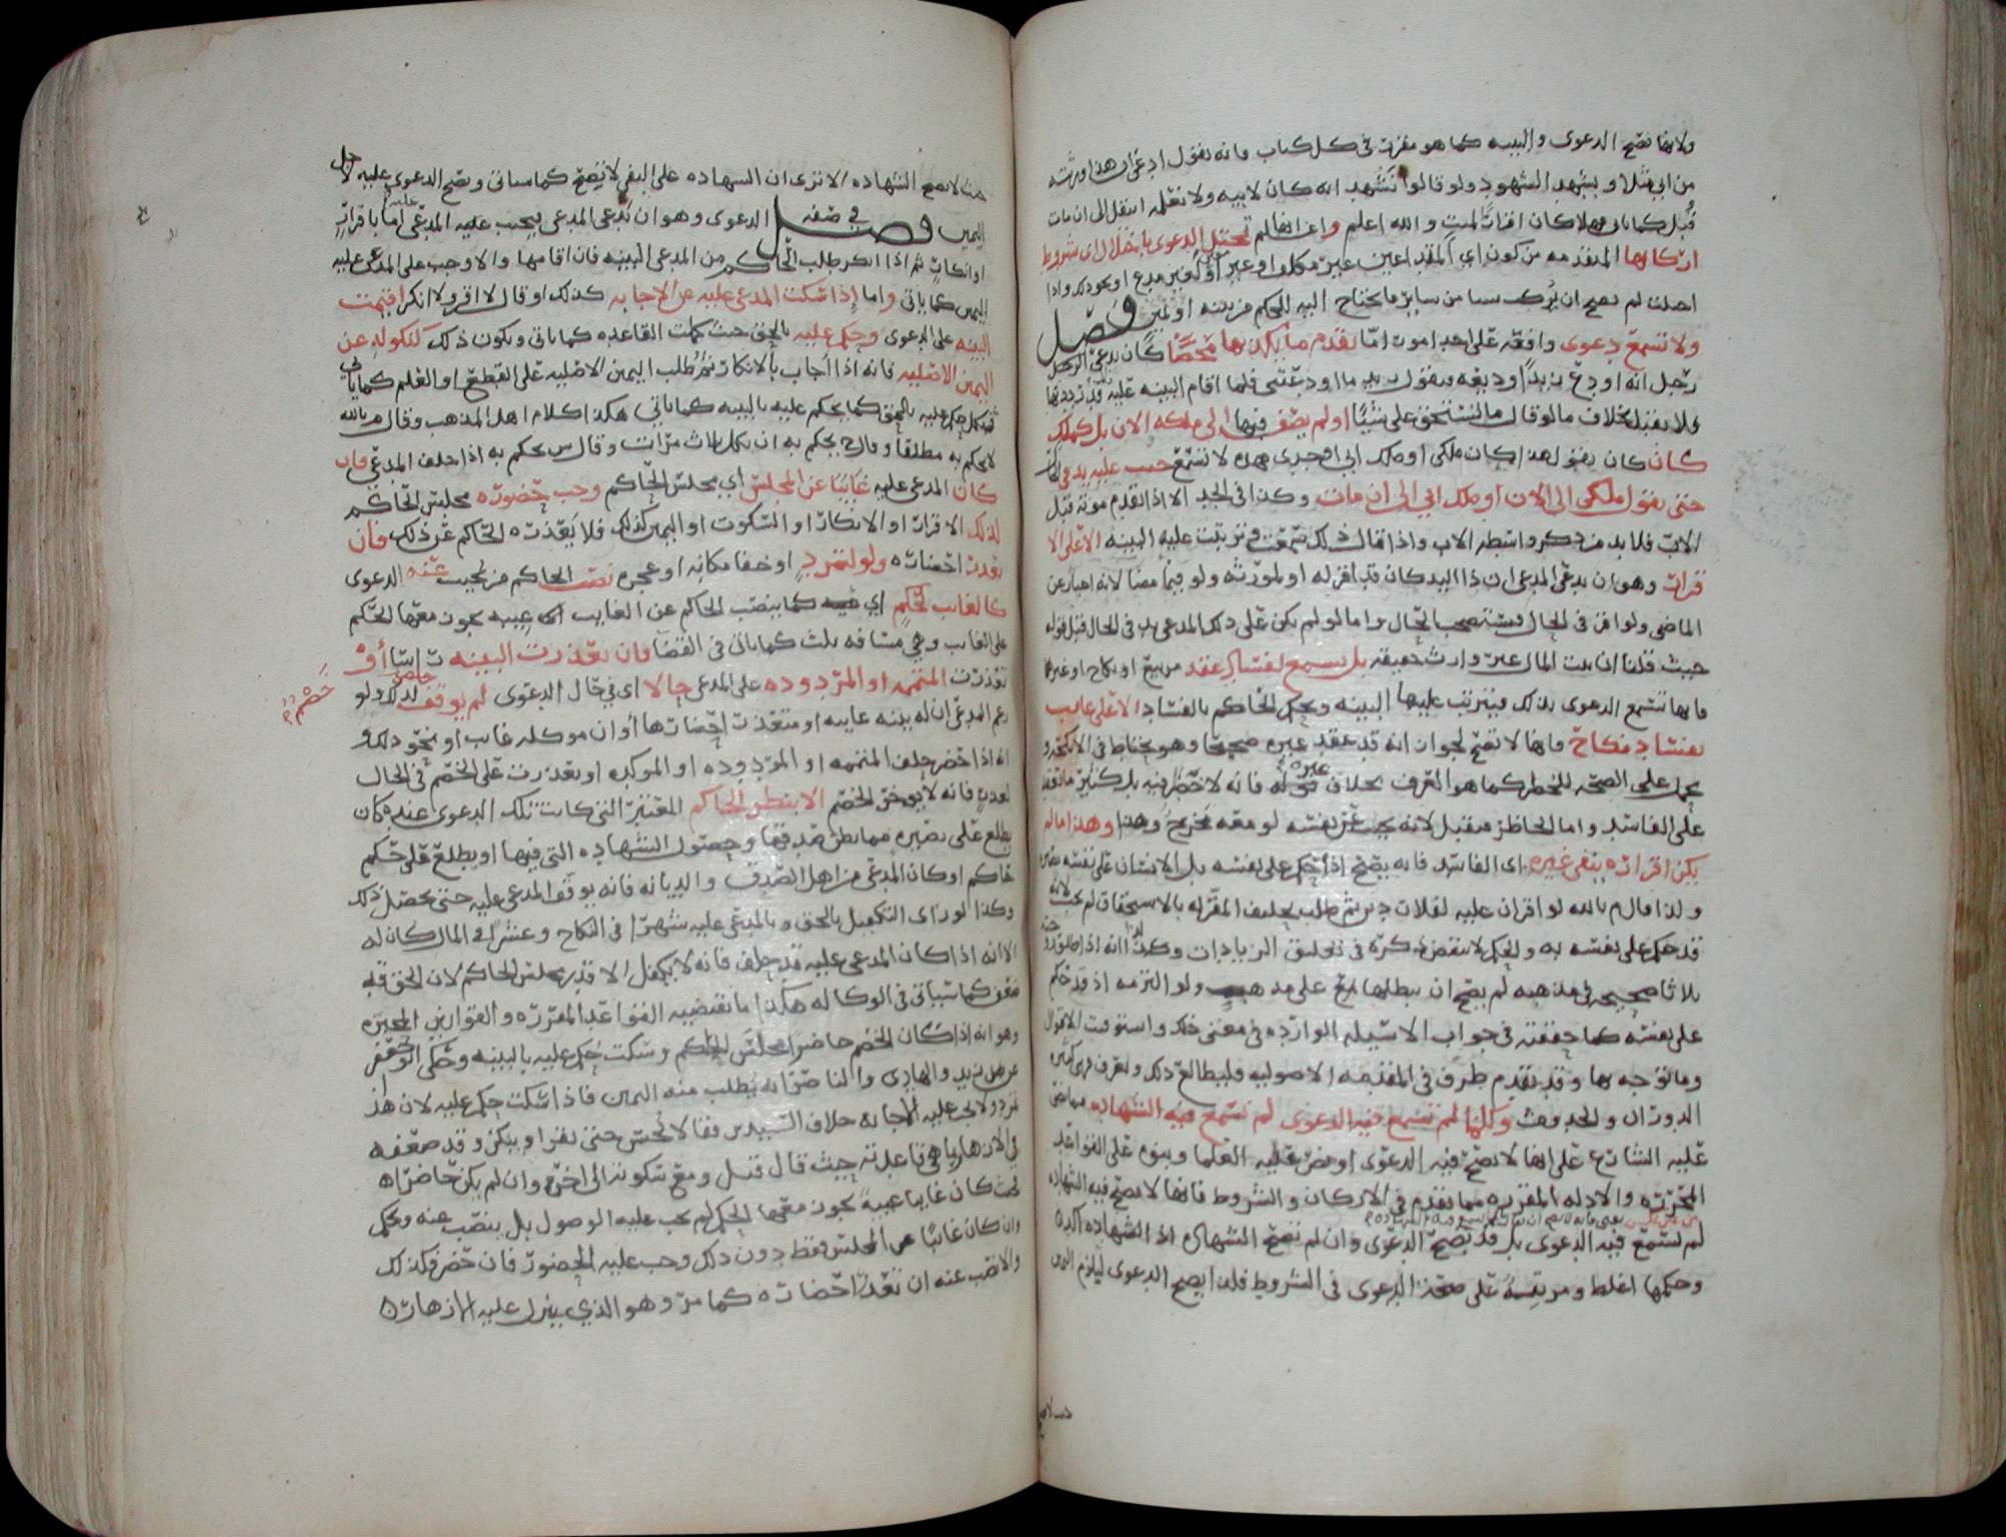 ولانها تصح الدعوى والبينه كما هو مقرر في كل كتاب فانه يقول ادعى ان هذا ورثته
من ابي مثلا ويشهد الشهود ولو قالوا نشهد انه كان لابيه ولا نعلمه انتقل الى ان مات
قبل كما ياتي كان اقرارا لميت والله اعلم وانها لم تختل الدعوى باختلال اي شروط
اركانها المتقدمه من كون اي عين غير مدع او نحو ذلك واذا
اختلت لم تصح ان يترك سببا من ساير ما يحتاج اليه الحكم من بينه او يمين فصل
ولا تسمع دعوى واقعه على احد امور اما تقدم ما يكذبها محضا كان يدعي الرجل
رجل انه اودع زيدا وديعه فيقول زيد ما اودعتني فلما اقام البينه عليه قد رددتها
فلا يقبل بخلاف ما لو قال ما تستحق علي شيئا او لم يضف فيها الى ملكه الان بل كملك
كان كان يقول هذا كان ملكي او ملك ابي او جدي فهذه لا تسمع حيث عليه يد في الحال
حتى يقول ملكي الى الان او ملك ابي الى ان مات وكذا في الجد الا اذا تقدم موته قبل
الاب فلا بد من ذكر واسطه الاب واذا قال ذلك سمعت وترتبت عليه البينه الا على الا
قرار وهو ان يدعي المدعي ان ذا اليد كان قد اقر له او لمورثه ولو فيما مضا لانه اخبار عن
الماضي ولو اقر في الحال فيستصحب الحال واما لو لم يكن على ذلك المدعى يد في الحال قبل قوله
حيث قلنا ان بيت المال غير وارث حقيقه بل يسمع لفساد عقد من بيع او نكاح او غيرهما
فانها تسمع الدعوى بذلك فيترتب عليها البينه ويحكم الحاكم بالفساد الا على غايب
بفساد نكاح فانها لا تصح لجواز انه قد عقد غيره صحيحا وهو يحتاط في الانكحه و
يحمل على الصحه للخطر كما هو العرف بخلاف غيره فانه لا خطر فيه بل كثير ما تعقد
على الفاسد واما الحاضر فيقبل لانه يجيب عن نفسه لو معه مخرج وهذا ما لم
يكن اقراره بنفي غيره اي الفاسد فانه يصح اذا حكم على نفسه بل الانسان على نفسه بصيره
ولذا قال م بالله لو اقر ان عليه لفلان دين ثم طلب تحليف المقر له بالاستحقاق لم يجب لانه
قد حكم على نفسه به والحكم لا ينقض ذكره في تعليق الزيادات وكذا انه اذا طلق زوجته
ثلاثا صحيحه في مذهبه لم يصح ان يبطلها على مذهب ولو التزمه اذ قد حكم
على نفسه كما حققته في جواب الاسئله الوارده في معنى ذلك واستوفيت الاقوال
وما توجه بها وقد تقدم طرف في المقدمه الاصوليه فليطالع ذلك وتعرف فهي كثيره
الدوران والحدوث وكلما لم تسمع فيه الدعوى لم تسمع فيه الشهاده مما نص
عليه الشارع على انها لا تصح فيه الدعوى او نص عليه العلما وبنوه على القواعد
المحرره والادله المقرره مما تقدم في الاركان والشروط فانها لا تصح فيه الشهاده
لم تسمع فيه الدعوى بل قد تصح الدعوى وان لم تصح الشهاده اذ الشهاده اكد
وحكمها اغلظ ومرتبه على صحه الدعوى في الشروط فلذا يصح الدعوى ليلزم اليمين
حيث لا تصح
حيث لا تصح الشهاده الا ترى ان الشهاده على النفي لا تصح كما سياتي وتصح الدعوى عليه لاجل
اليمين فصل في صفه الدعوى وهو ان يدعي المدعي يجب عليه المدعى عليه اما باقرار
او انكار ثم اذا انكر طلب الحاكم من المدعي البينه فان اقامها والا وجب على المدعى عليه
اليمين كما ياتي واما اذا سكت المدعى عليه عن الاجابه كذلك او قال لا اقر ولا انكر اقيمت
البينه على الدعوى وحكم عليه بالحق حيث كملت القاعده كما ياتي ويكون ذلك كنكوله عن
اليمين الاصليه فانه اذا اجاب بالانكار ثم طلب اليمين الاصليه على القطع او العلم كما ياتي
حكم عليه بالحق كما يحكم عليه بالبينه كما ياتي هكذا كلام اهل المذهب وقال م بالله
لا يحكم به مطلقا وقال ح يحكم به ان نكل ثلاث مرات وقال س يحكم به اذا حلف المدعي فان
كان المدعى عليه غايبا عن المجلس اي مجلس الحاكم وجب حضوره مجلس الحاكم
لذلك الاقرار او الانكار او السكوت او اليمين كذلك فلا يعذره الحاكم عن ذلك فان
تعذر احضاره ولو لتمرد او خفا مكانه او عجزه نصب الحاكم من يجيب عنه الدعوى
كالغايب لحكم اي كما ينصب الحاكم عن الغايب اي غيبه يجوز معها الحكم
على الغايب وهي مسافه ثلث كما ياتي في القضا فان تعذرت البينه راسا او
تعذرت المتممه او المردوده على المدعي حالا اي في حال الدعوى لم يوقف خصم لذلك ولو
زعم المدعي ان له بينه غايبه او متعذر احضارها او ان موكله غايب او نحو ذلك و
انه اذا حضر حلف المتممه او المردوده او الموكده او تعذرت على الخصم في الحال
لعذر فانه لا يوخر الخصم الا بنظر الحاكم المعتبر الذي كانت تلك الدعوى عنده كان
يطلع على بصيره مما يظن صدقها وحصول الشهاده التي فيها او يطلع على حكم
حاكم او كان المدعي من اهل الصدق والديانه فانه يوقف المدعى عليه حتى يحصل ذلك
وكذا لو راى التكفيل بالحق وبالمدعى عليه شهرا في النكاح وعشرا في المال كان له
الا انه اذا كان المدعى عليه قد حلف فانه لا يكفل الا قدر مجلس الحاكم لان الحق فيه
كما سياتي في الوكاله هكذا ما تقتضيه القواعد المقرره والقوانين المحرره
وهو انه اذا كان الخصم حاضرا مجلس الحاكم وسكت حكم عليه بالبينه وحكى ابو جعفر
عن زيد والهادي والناصر انه يطلب منه اليمين فاذا سكت حكم عليه لان هذا
تمرد ولا تجب عليه الاجابه خلاف السيدين فقالا يحبس حتى يقر او ينكر وقد ضعفه
في الازهار قاعدته حيث قال قبل ومع سكوته الى اخره وان لم يكن حاضرا
كان غايبا غيبه يجوز معها الحكم لم يجب عليه الوصول بل ينصب عنه ويحكم
وان كان غايبا عن المجلس فقط دون ذلك وجب عليه الحضور فان حضر فكذلك
والا نصب عنه ان تعذر احضاره كما مر وهو الذي ينزل عليه الازهار
خصم